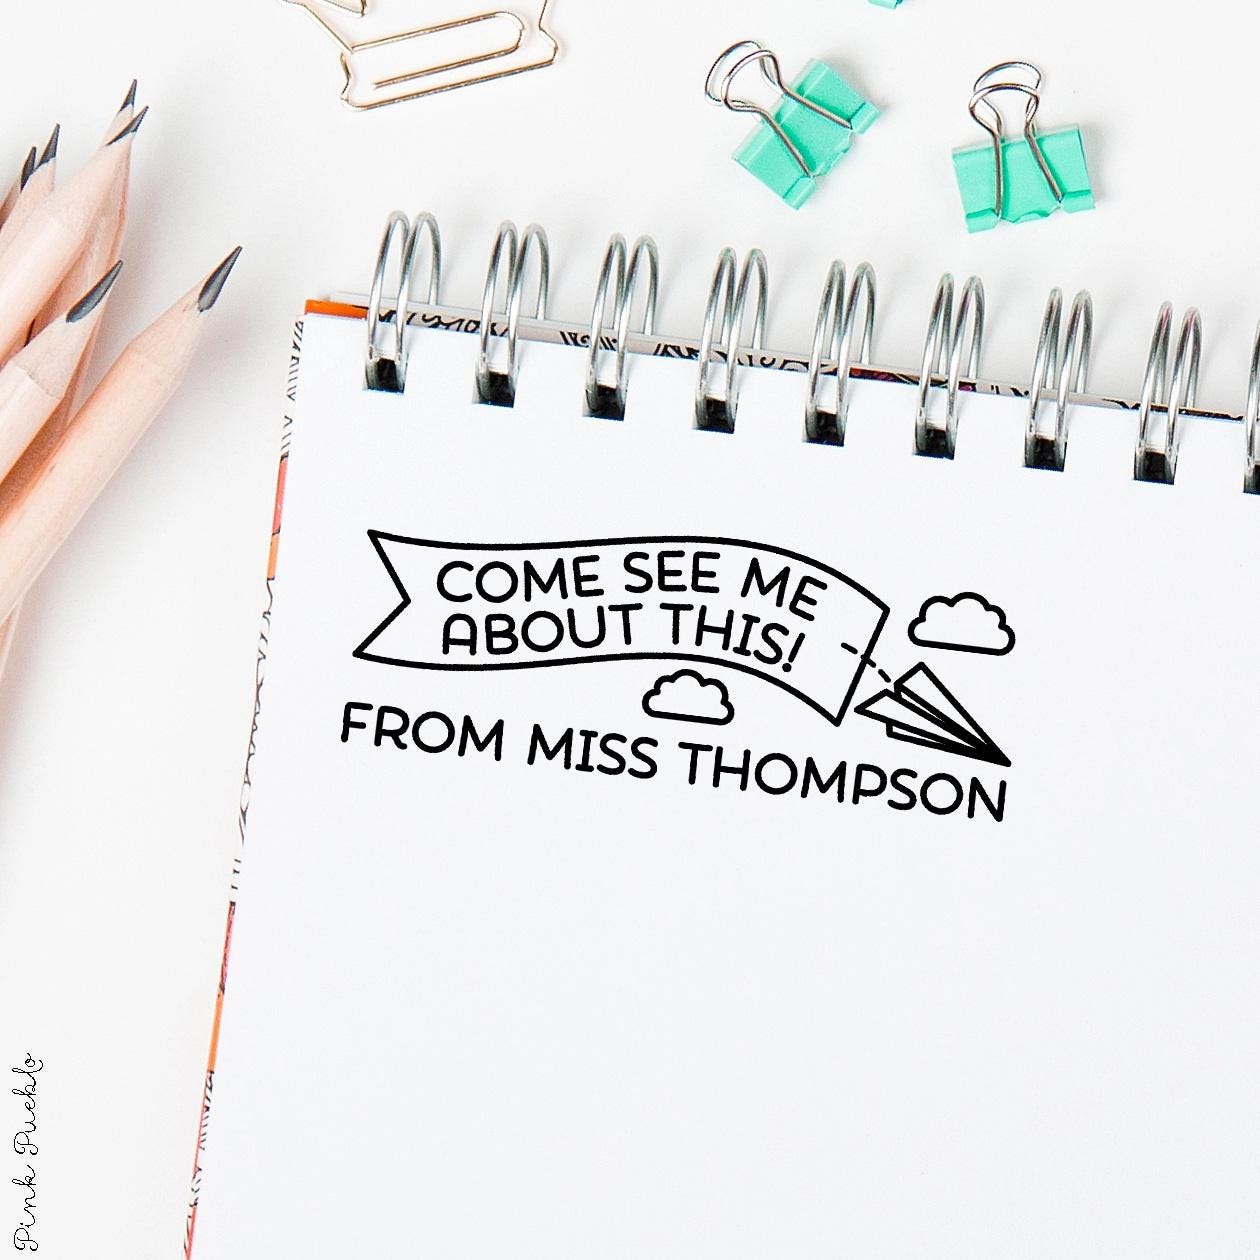 COME SEE ME
ABOUT THIS!
FROM MISS THOMPSON
Pink Pueblo